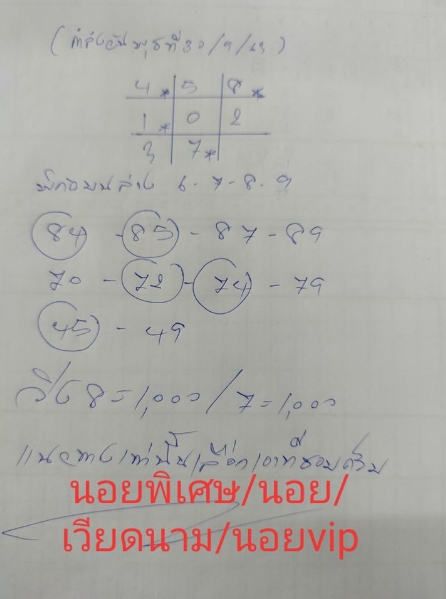 (คำสั่งวันพุธที่ 30/9/63)
4* 5 8*
1* 0 2
3 7*
6-7-8-9
84 - 85 - 87 - 89
70 - 72 - 74 - 79
45 - 49
วิ่ง 8=1,000 / 7=1,000
แนวทางเท่านั้นเลือกเอาที่ชอบครับ
นอยพิเศษ/นอย/
เวียดนาม/นอยvip